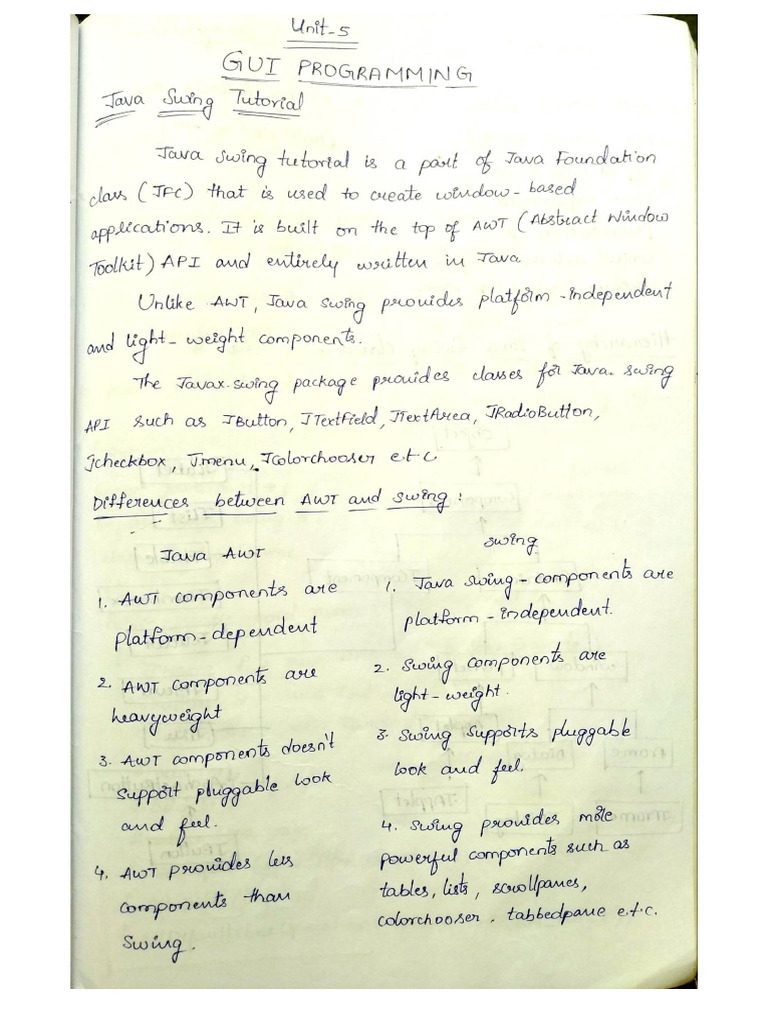 Unit-5
GUI PROGRAMMING
Java Swing Tutorial
Java swing tutorial is a part of Java Foundation
class (JFC) that is used to create window-based
applications. It is built on the top of AWT (Abstract Window
Toolkit) API and entirely written in Java
Unlike AWT, Java swing provides platform-independent
and light-weight components.
The Javax.swing package provides classes for Java swing
API such as JButton, JTextField, JTextArea, JRadioButton,
Jcheckbox, Jmenu, JColorchooser e.t.c
Differences between AWT and swing:
Java AWT
1. AWT components are
platform-dependent
2. AWT components are
heavyweight
3. AWT components doesn't
support pluggable look
and feel.
4. AWT provides less
components than
Swing.
swing
1. Java swing-components are
platform-independent.
2. Swing components are
light-weight.
3. Swing supports pluggable
look and feel.
4. Swing provides more
powerful components such as
tables, lists, scrollpanes,
colorchooser, tabbedpane e.t.c.